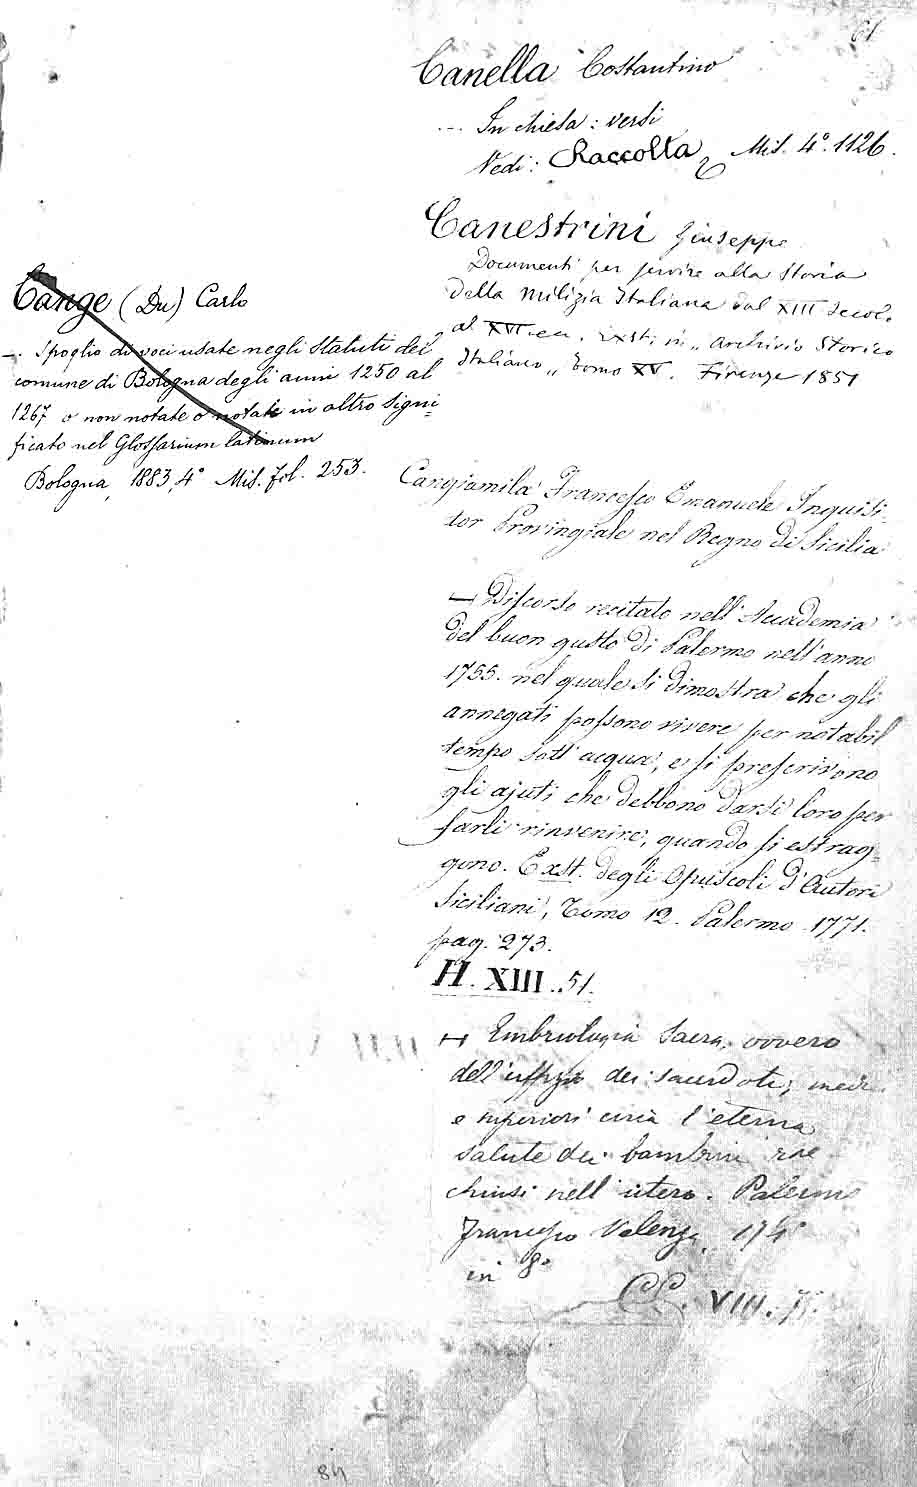 61
Canella Costantino
— In chiesa: versi
Vedi: Raccolta, Mis. 4º. 1126.
Canestrini Giuseppe
Documenti per servire alla Storia
della Milizia Italiana dal XIII secolo
al XVI ecc. exst: in „ Archivio Storico
Italiano „ Tomo XV. Firenze 1851
Cange (Du) Carlo
—. Spoglio di voci usate negli Statuti del
comune di Bologna degli anni 1250 al
1267 o non notate o notate in altro signi-
ficato nel Glossarium latinum
Bologna, 1883, 4º Mis. fol. 253.
Cangiamila Francesco Emanuele Inquisi-
tor Provinziale nel Regno di Sicilia
— Discorso recitato nell'Accademia
del buon gusto di Palermo nell'anno
1755. nel quale si dimostra che gli
annegati possono vivere per notabil
tempo sott'acqua, e si prescrivono
gli ajuti che debbono darsi loro per
farli rinvenire, quando si estrag-
gono. Exst. degli Opuscoli d'Autori
Siciliani, Tomo 12. Palermo 1771.
pag. 273.
H. XIII. 51.
— Embriologia Sacra, ovvero
dell'uffizio dei sacerdoti, medici
e superiori circa l'eterna
salute dei bambini rac-
chiusi nell'utero. Palermo
Francesco Valenza,
in 8º
CC. VIII.
84